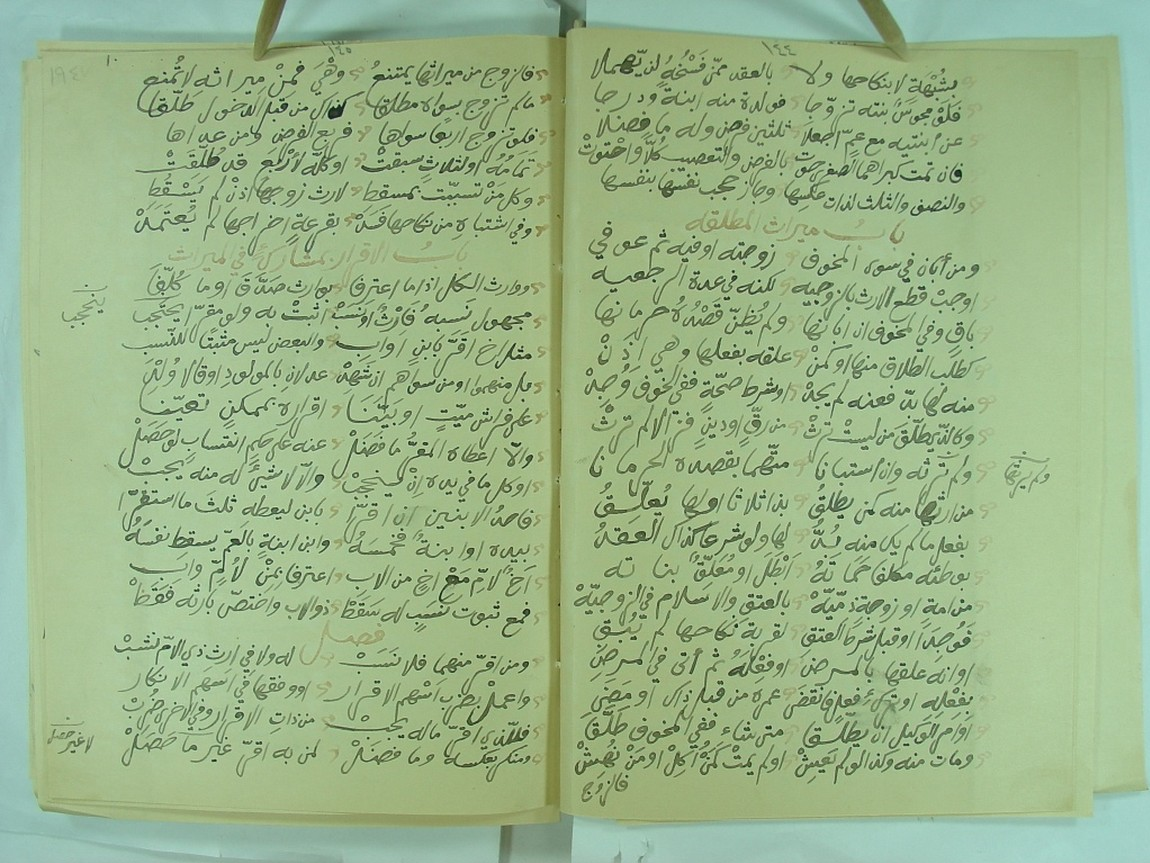 ١٤٤
بشبهة لا بنكاحها ولا بالعقد ممن فسخه لن يهملا
فلو مجوس بنته تزوجا فولدة منه ابنة ودرجا
عن ابنتيه مع عم اجعلا ثلثين فرض وله ما فضلا
فان تمت كبراهما الصغرى حوت بالفرض والتعصيب كلا واحتوت
والنصف والثلث لذات عكسها وجاز حجب نفسها بنفسها
باب ميراث المطلقه
ومن أبان في سوى المخوف زوجته اوفيه ثم عوفي
اوجب قطع الارث بالزوجيه لكنه في عدة الرجعيه
باق وفي المخوف ان ابانها ولم يظن قصده حرمانها
كطلب الطلاق منها او كمن علقه بفعلها وهي اذن
منه لها بد فعنه لم يجد اوشرط صحة ففي الخوف وجد
وكالذي يطلق من ليست ترث من رق او دين فزالا لم ترث
ولم ترثه وان استبانا متهما بقصده الحرمانا
ولم يرثها
من ارثها منه كمن يطلق بذا ثلاثا اولها يعلق
بفعل ما لم يك منه بد لها ولو شرعا كذاك العقد
بوطئه معلقا حماته ابطل او معلق بناته
من امة او زوجة ذمية بالعتق والاسلام في الزوجية
فوجدا اوقبل شرط العتق لقربة نكاحها لم تبق
او انه علقها بالمرض اوفعله ثم أتى في المرض
بفعله او بترك فعل فانقضى عمره من قبل ذاك او مضى
اوامر الوكيل ان يطلق متى شاء ففي المخوف طلق
ومات منه ولذا لو لم يعش اولم يمت كمن أكل اومن نهش
فالزوج
١٤٥
فالزوج من ميراثها يمتنع وهي فمن ميراثه لا تمنع
ما لم تزوج بسواه مطلقا كذاك من قبل الدخول طلقا
فلو تزوج اربعا سواها فربع الفرض ومن عداها
تمامه اولثلاث سبقت اوكله لاربع قد طلقت
وكل من تسببت بمسقط لارث زوجها اذن لم يسقط
وفي اشتباه من نكاحها فسد بقرعة اخراجها لم يعتمد
باب الاقرار بمشارك في الميراث
ووارث الكل اذا ما اعترفا بوارث صدق او ما كلفا
مجهول نسبه فارثا ونسب اثبت به ولو مقرا يحتجب
ينحجب
مثل اخ اقر بابن اواب والبعض ليس مثبتا للنسب
بل منهموا اومن سواهم ان شهد عدلان بالمولود اوقالا ولد
على فراش ميت اوبينا اقراره بممكن تعينا
والا اعطاه المقر ما فضل عنه على حكم انتساب لو حصل
اوكل ما في يده ان ينحجب والا لا شيء له منه يجب
فاحد الابنين ان اقرا بابن ليعطه ثلث ما استقرا
بيده اوابنة فخمسه وابن ابنة بالعم يسقط نفسه
أخ لام مع اخ من الاب اعترفا بمن لأم واب
فمع ثبوت نسب له سقط ذوالاب واختص بارثه فقط
فصل
ومن اقر منهما فلا نسب له ولا في ارث ذي الام نشب
واعمل بضرب اسهم الاقرار اووفقها في اسهم الانكار
فللذي اقر ماله يجب من ذات الاقرار وفي الاخرى ضرب
ومنكر بعكسه وما فضل لمن به اقر غير ما حصل
لا غير